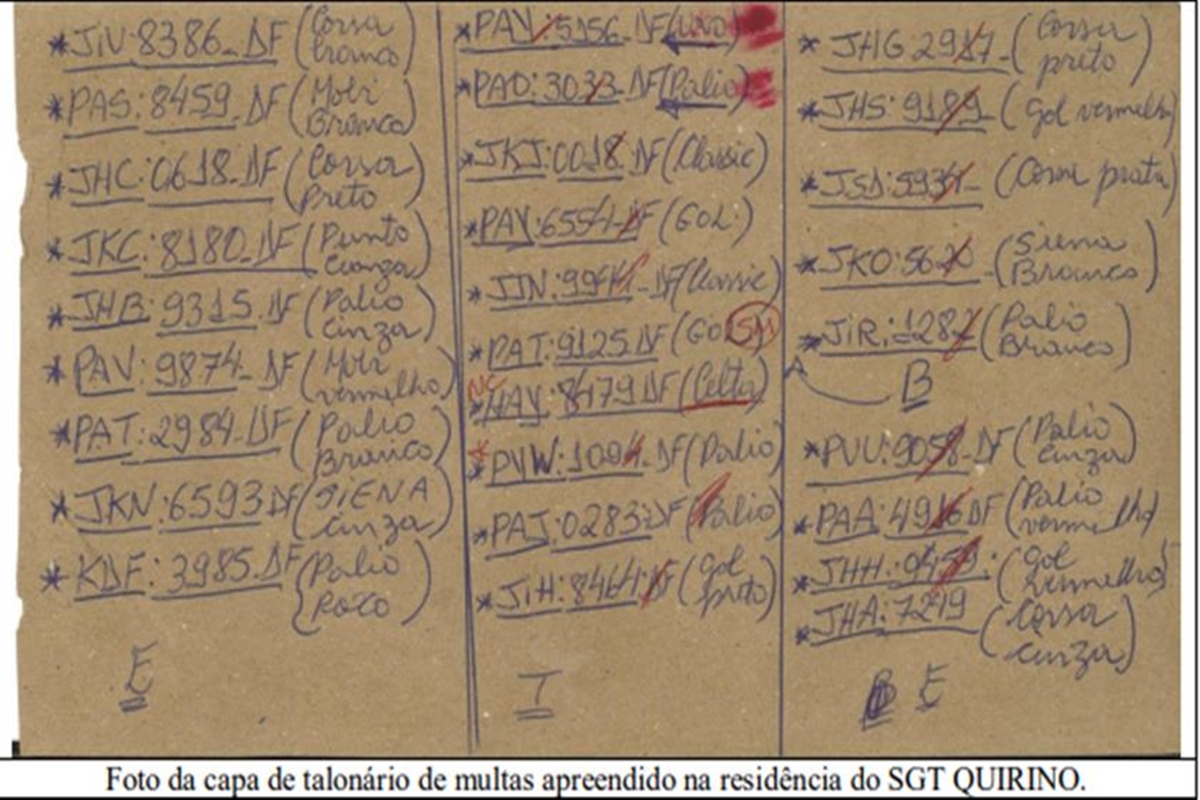 *JiV:8386_DF (Corsa
branco)
*PAS:8459_DF (Mobi
Branco)
*JHC:0618_DF (Corsa
Preto)
*JKC:8180_DF (Punto
Cinza)
*JHB:9315.DF (Palio
cinza)
*PAV:9874_DF (Mobi
vermelho)
*PAT:2984_DF (Palio
Branco)
*JKN:6593DF (SiENA
cinza)
*KDF:3985.DF (Palio
Roxo)
E
*PAV:5156_DF (Uno)
*PAO:3033-DF (Palio)
*JKJ:0018 DF (Classic)
*PAY:6554-DF (GOL)
*JJN:9944-DF (Classic)
*PAT:9125DF (GOL SM)
NC
*HAY:8479DF (Celta)
*PVW:1094-DF (Palio)
*PAJ:0283:DF (Palio)
*JiH:8464:DF (gol
preto)
T
*JHG:2917-(Corsa
preto)
*JHS:9189- (gol vermelho)
*JSD:5934- (Corsa prata)
*JKO:5620 -(Siena
Branco)
*JiR:1287 (Palio
Branco)
A B
*PVU:9058-DF (Palio
cinza)
*PAA:4916DF (Palio
vermelho)
*JHH:9459: (gol
vermelho)
*JHA:7219 (Corsa
cinza)
B E
Foto da capa de talonário de multas apreendido na residência do SGT QUIRINO.